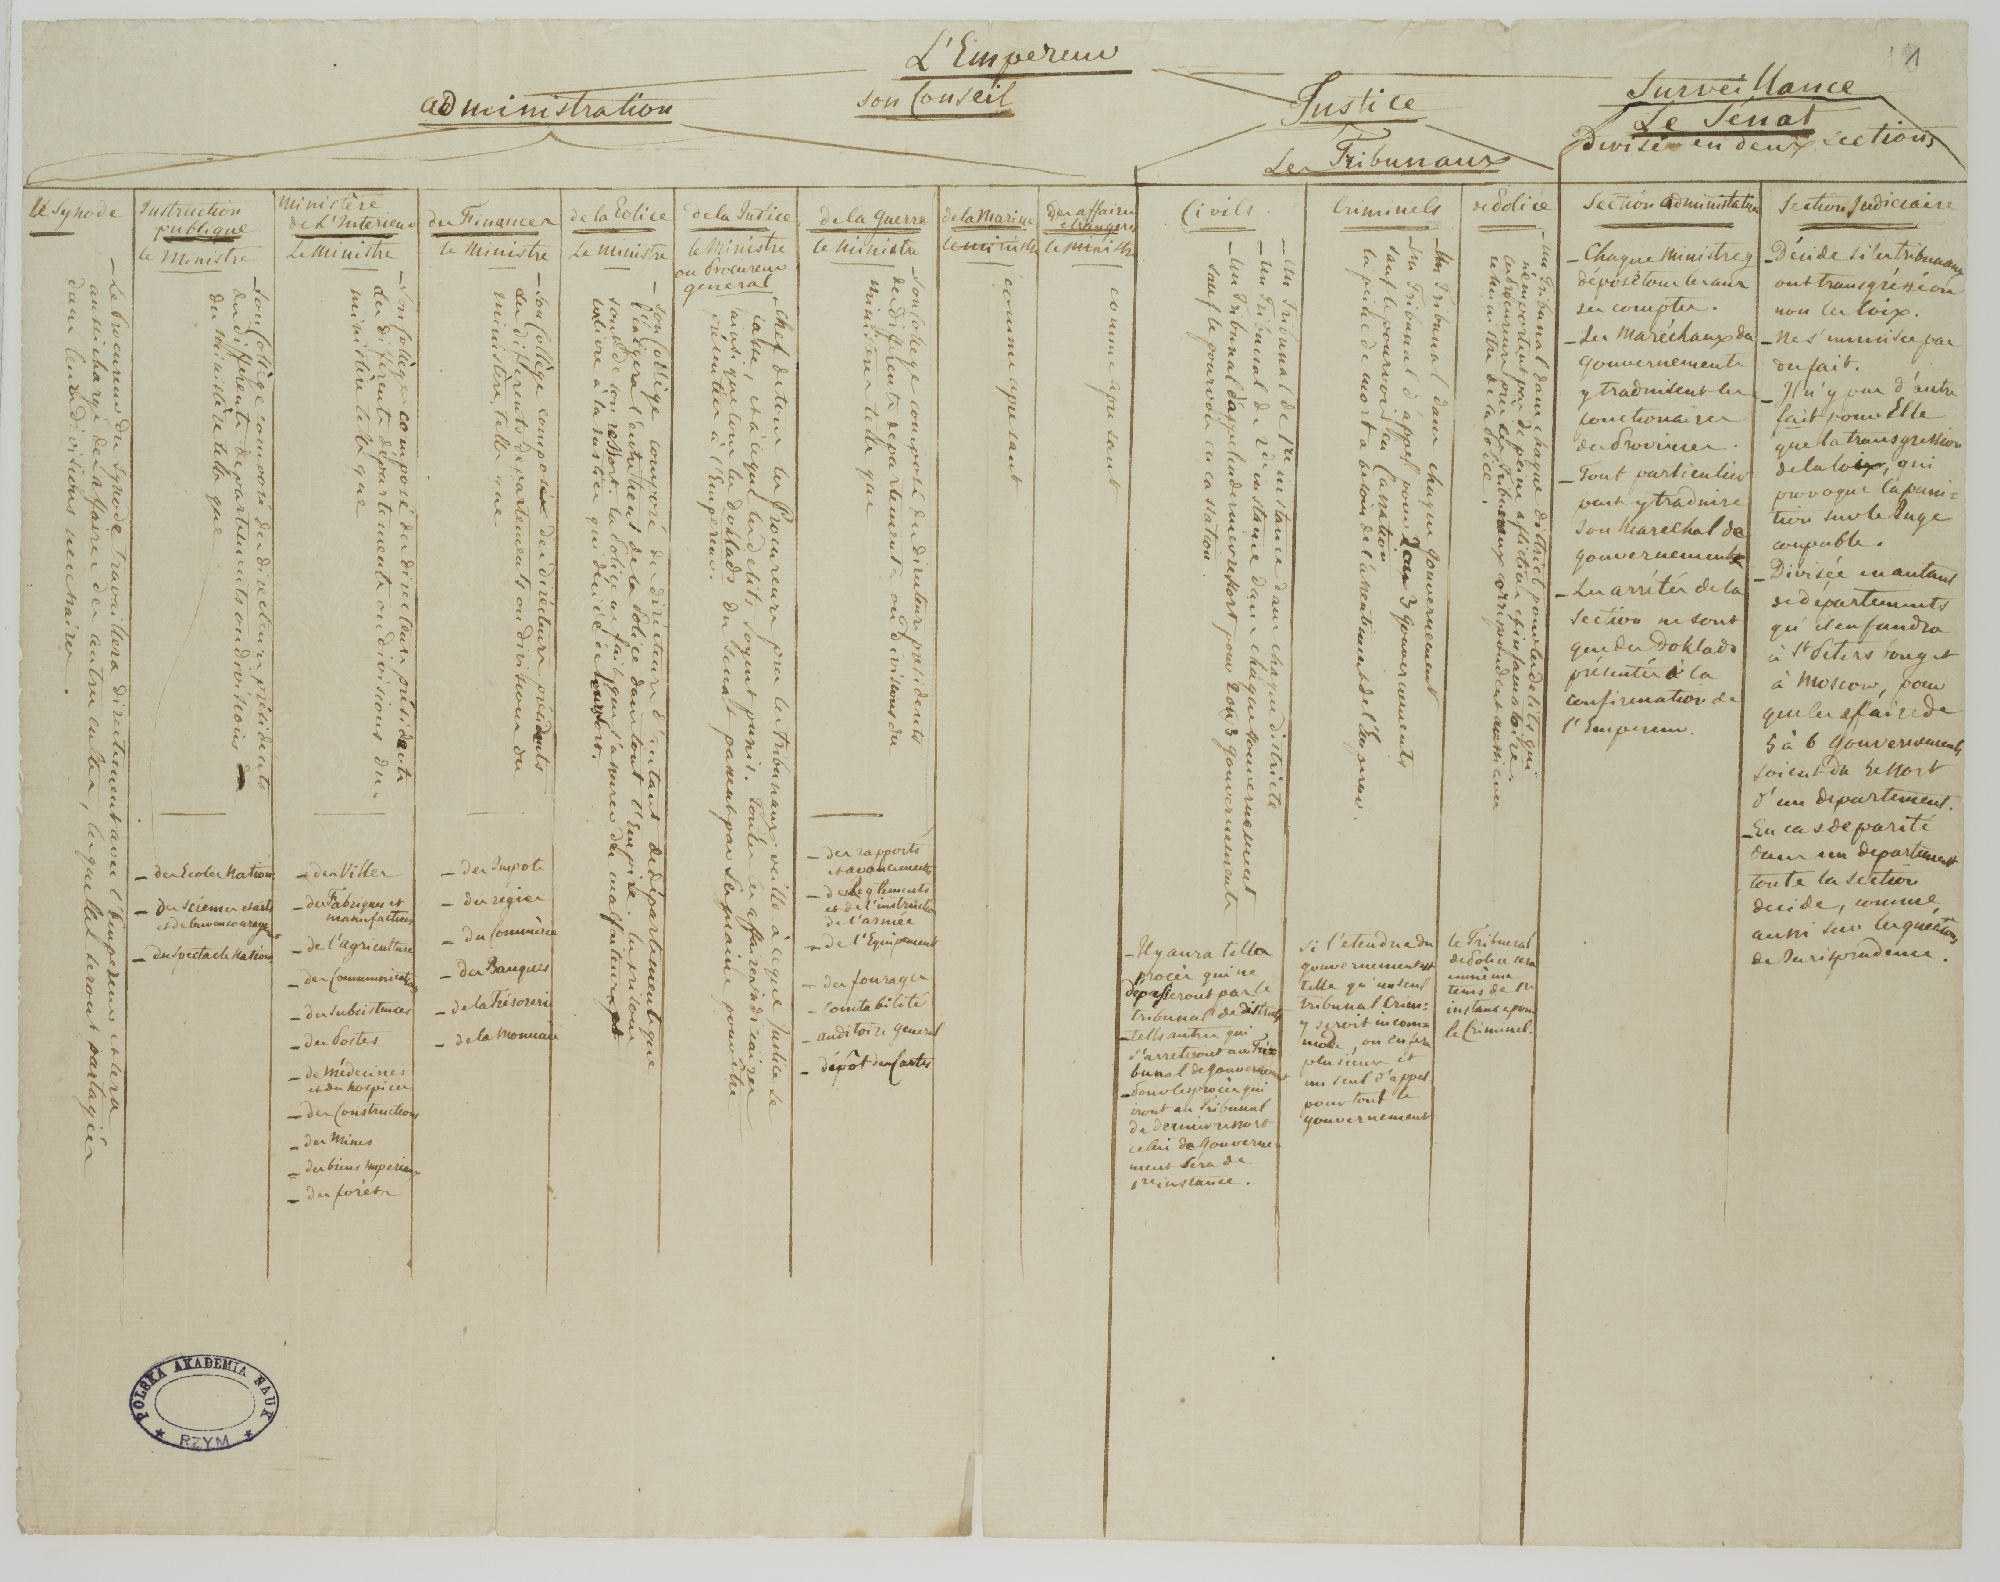 L'Empereur
son Conseil
administration
Justice
Les Tribunaux
Surveillance
Le Sénat
Divisé en deux sections
11
le Synode
– Le Procureur du Synode travaillera directement avec l'Empereur et sera
aussi chargé des affaires des autres cultes, lesquelles seront partagées
dans leurs divisions necessaires.
Instruction
publique
le Ministre
– Son Collège composé des directeurs présidents
des différents départements ou divisions
du ministère tels que
– des Ecoles Nation.
– des Sciences et arts
et de leur encouragemt
– des Spectacles Nation.
Ministère
de l'Interieur
Le Ministre
– Son Collège composé des directeurs présidents
des différents départements ou divisions du
ministère tels que
– des Villes
– des Fabriques et
manufactures
– de l'agriculture
– des Communications
– des Subsistances
– des Postes
– de Médecines
et des hospices
– des Constructions
– des Mines
– des biens Imperiaux
– des forêts
des Finances
le Ministre
– Son Collège composé des directeurs présidents
des différents départements ou divisions du
ministère, tels que
– des Impots
– des régies
– du Commerce
– des Banques
– de la Trésorerie
– de la Monnaie
de la Police
Le Ministre
– Son Collège composé de directeurs d'autant de départements que
l'exigera l'entretien de la Police dans tout l'Empire. les prisons
sont de son ressort. la Police ne fait que s'assurer des malfaiteurs et
les livre à la Justice qui décide de leur sort.
de la Justice
le Ministre
ou Procureur
general
– chef de tous les Procureurs près les tribunaux veille à ce que Justice se
fasse, et à ce que les delits soyent punis. toutes les affaires judiciaires
ainsi que tous les Doklads du Senat passent par ses mains pour être
présentées à l'Empereur.
de la Guerre
le Ministre
– Son Collège composé des directeurs présidents
des différents départements ou divisions du
ministère tels que
– des rapports
et avancements
– des Règlements
et de l'instruction
de l'armée
– de l'Equipement
– des fourages
– Comtabilité
– auditoire general
– dépôt des Cartes
de la Marine
le Ministre
comme apresant
des affaires
étrangères
le Ministre
comme apresant
Civils.
– Un Tribunal de 1re instance dans chaque districte
– Un Tribunal de 2de instance dans chaque gouvernement
– Un Tribunal d'appel en dernier ressort pour 2 ou 3 gouvernements
sauf le pourvoir en cassation
– Il y aura telles
procès qui ne
dépasseront pas le
tribunal de districts
– tells autres qui
s'arreteront au Tri=
bunal de gouvernement
– dont les procès qui
iront au Tribunal
de dernier ressort
celui de Gouverne=
ment sera de
1re instance.
Criminels
– Un Tribunal dans chaque gouvernement
– Un Tribunal d'appel pour 2 ou 3 gouvernements
sauf le pourvoir en Cassation
la peine de mort a besoin de l'assentiment de l'Empereur.
si l'etendue du
gouvernement est
telle qu'un seul
tribunal Crim:
y seroit incom=
mode, on en fera
plusieurs et
un seul d'appel
pour tout le
gouvernement
de Police
– Un Tribunal dans chaque district pour les delits qui
n'emportent pas de peine afflictive et infamatoire.
les Procureurs près ces Tribunaux correspondent aussi avec
le ministre de la Police.
le Tribunal
de Police sera
en même
tems de 1re
instance pour
le Criminel.
Section administrative
– Chaque Ministre y
dépose tous les ans
ses comptes.
– Les Maréchaux des
gouvernements
y traduisent les
fonctionaires
des Provinces.
– Tout particulier
peut y traduire
son Marechal de
gouvernement
– Les arrêtés de la
Section ne sont
que des Doklads
présentés à la
confirmation de
l'Empereur.
Section Judiciaire
– Décide si les tribunaux
ont transgressé ou
non les loix.
– Ne s'immisce pas
du fait.
– Il n'y a d'autre
fait pour Elle
que la transgression
de la loix, qui
provoque la puni=
tion sur le Juge
coupable.
– Divisée en autant
de départements
qu'il en faudra
à St Petersbourg et
à Moscow, pour
que les affaires de
5 à 6 gouvernements
soient du ressort
d'un departement.
– En cas de parité
dans un departement
toute la section
decide, comme
aussi sur les questions
de Jurisprudence.
POLSKA AKADEMIA NAUK
★ RZYM ★